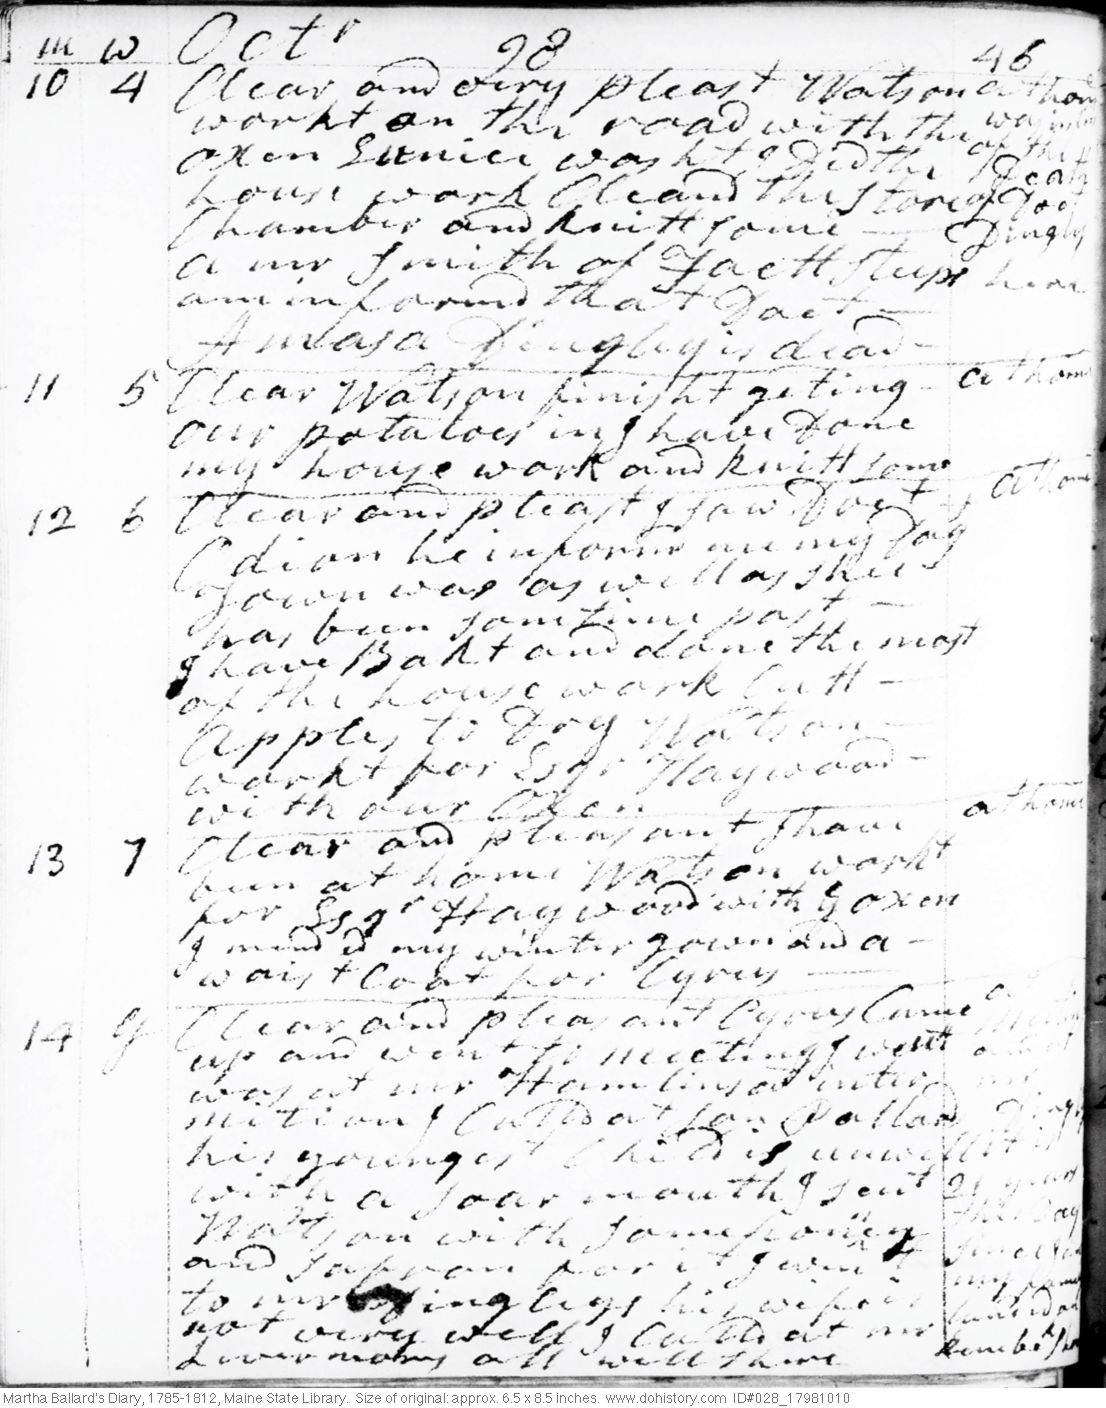 m w Octr 98 46
10 4 Clear and very pleast Watson at home
workt on the road with the was informd
oxen Eunice washt I did the of the
house work Cleand the Store Death
Chamber and knitt some — of Doct
a mr Smith of Facett sleeps here Dingly
am informd that Doct —
Amasa Dingley is dead —
11 5 Clear Watson finisht geting — at home
our potatoes in I have Done
my house work and knitt some
12 6 Clear and pleast I saw Doct at home
Cdian he informd me my Dag
Town was as well as shee
has been sometime past —
I have Bakt and done the most
of the house work Cutt —
Apples to Dry Watson —
workt for Esqr Haywood —
with our Oxen
13 7 Clear and pleasant I have at home
been at home Watson workt
for Esqr Haywood with ye oxen
I mend id my winter gown and a —
waist Coat for Cyrus —
14 g Clear and pleasant Cyrus Came at
up and went to meeting I went
was at mr Hamlins at inter
mition I Calld at son Pollard
his youngest Child is unwell it is
with a soar mouth I sent 21 years
Watson with some honey this Day
and safron for it I went since
to mr Dingleys his wife is my
not very well I Calld at mr
Livermores all well there